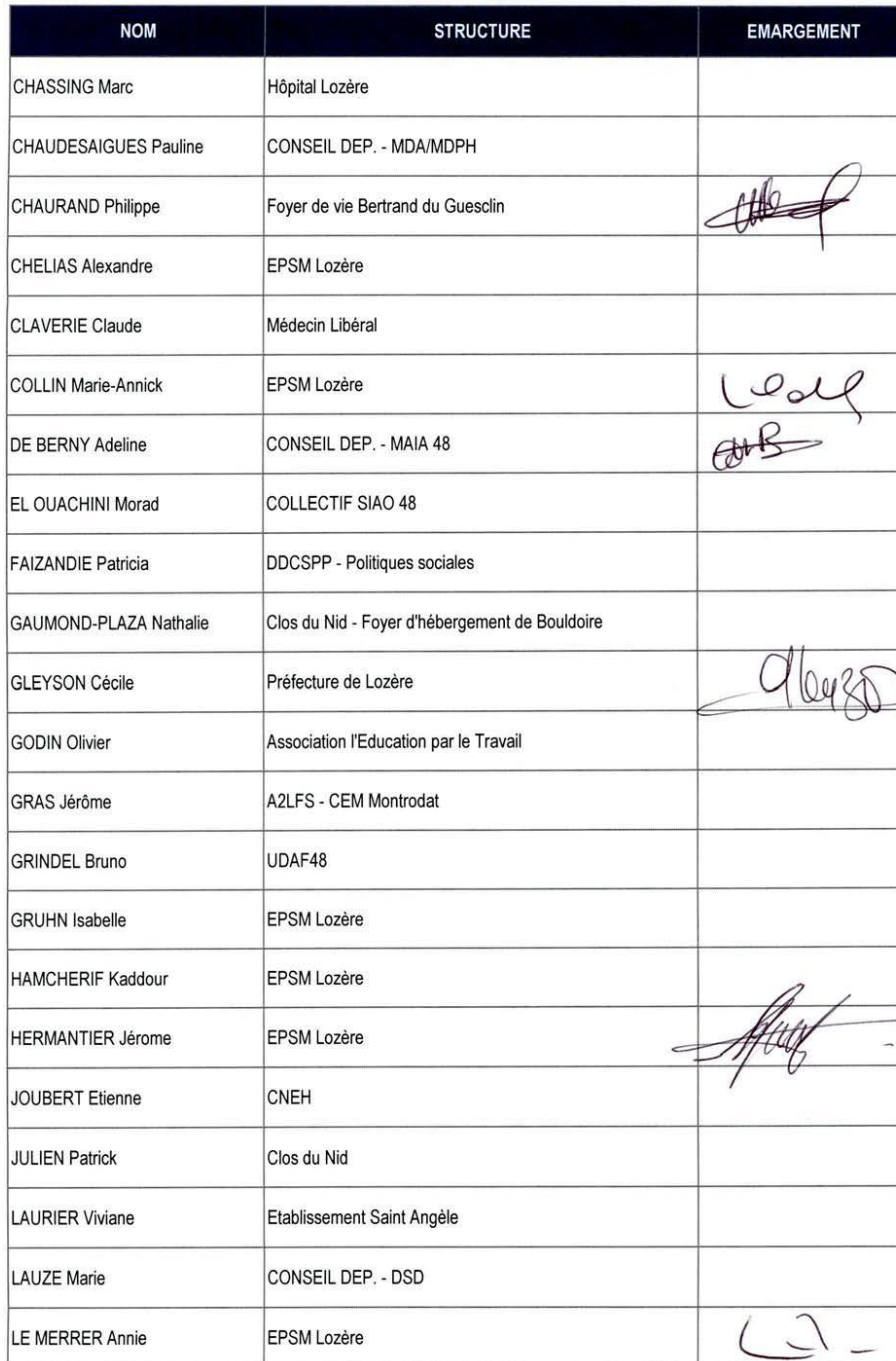 NOM STRUCTURE EMARGEMENT
CHASSING Marc Hôpital Lozère
CHAUDESAIGUES Pauline CONSEIL DEP. - MDA/MDPH
CHAURAND Philippe Foyer de vie Bertrand du Guesclin
CHELIAS Alexandre EPSM Lozère
CLAVERIE Claude Médecin Libéral
COLLIN Marie-Annick EPSM Lozère
DE BERNY Adeline CONSEIL DEP. - MAIA 48
EL OUACHINI Morad COLLECTIF SIAO 48
FAIZANDIE Patricia DDCSPP - Politiques sociales
GAUMOND-PLAZA Nathalie Clos du Nid - Foyer d'hébergement de Bouldoire
GLEYSON Cécile Préfecture de Lozère
GODIN Olivier Association l'Education par le Travail
GRAS Jérôme A2LFS - CEM Montrodat
GRINDEL Bruno UDAF48
GRUHN Isabelle EPSM Lozère
HAMCHERIF Kaddour EPSM Lozère
HERMANTIER Jérome EPSM Lozère
JOUBERT Etienne CNEH
JULIEN Patrick Clos du Nid
LAURIER Viviane Etablissement Saint Angèle
LAUZE Marie CONSEIL DEP. - DSD
LE MERRER Annie EPSM Lozère